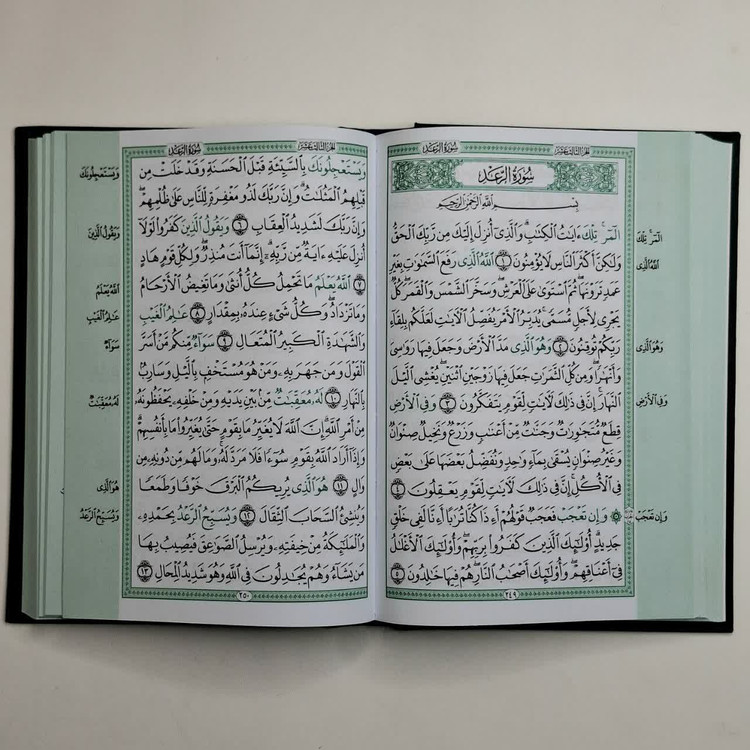 الجزء الثالث عشر
سورة الرعد
سُورَةُ الرَّعْدِ
بِسْمِ اللَّهِ الرَّحْمَٰنِ الرَّحِيمِ
الٓمٓرۚ تِلْكَ ءَايَٰتُ ٱلْكِتَٰبِۗ وَٱلَّذِىٓ أُنزِلَ إِلَيْكَ مِن رَّبِّكَ ٱلْحَقُّ
وَلَٰكِنَّ أَكْثَرَ ٱلنَّاسِ لَا يُؤْمِنُونَ ١ ٱللَّهُ ٱلَّذِى رَفَعَ ٱلسَّمَٰوَٰتِ بِغَيْرِ
عَمَدٍ تَرَوْنَهَاۖ ثُمَّ ٱسْتَوَىٰ عَلَى ٱلْعَرْشِۖ وَسَخَّرَ ٱلشَّمْسَ وَٱلْقَمَرَۖ كُلٌّ
يَجْرِى لِأَجَلٍ مُّسَمًّىۚ يُدَبِّرُ ٱلْأَمْرَ يُفَصِّلُ ٱلْءَايَٰتِ لَعَلَّكُم بِلِقَآءِ
رَبِّكُمْ تُوقِنُونَ ٢ وَهُوَ ٱلَّذِى مَدَّ ٱلْأَرْضَ وَجَعَلَ فِيهَا رَوَٰسِىَ
وَأَنْهَٰرًاۖ وَمِن كُلِّ ٱلثَّمَرَٰتِ جَعَلَ فِيهَا زَوْجَيْنِ ٱثْنَيْنِۖ يُغْشِى ٱلَّيْلَ
ٱلنَّهَارَۚ إِنَّ فِى ذَٰلِكَ لَءَايَٰتٍ لِّقَوْمٍ يَتَفَكَّرُونَ ٣ وَفِى ٱلْأَرْضِ
قِطَعٌ مُّتَجَٰوِرَٰتٌ وَجَنَّٰتٌ مِّنْ أَعْنَٰبٍ وَزَرْعٌ وَنَخِيلٌ صِنْوَانٌ
وَغَيْرُ صِنْوَانٍ يُسْقَىٰ بِمَآءٍ وَٰحِدٍ وَنُفَضِّلُ بَعْضَهَا عَلَىٰ بَعْضٍ
فِى ٱلْأُكُلِۚ إِنَّ فِى ذَٰلِكَ لَءَايَٰتٍ لِّقَوْمٍ يَعْقِلُونَ ٤
۞ وَإِن تَعْجَبْ فَعَجَبٌ قَوْلُهُمْ أَءِذَا كُنَّا تُرَٰبًا أَءِنَّا لَفِى خَلْقٍ
جَدِيدٍۗ أُو۟لَٰٓئِكَ ٱلَّذِينَ كَفَرُوا۟ بِرَبِّهِمْۖ وَأُو۟لَٰٓئِكَ ٱلْأَغْلَٰلُ
فِىٓ أَعْنَاقِهِمْۖ وَأُو۟لَٰٓئِكَ أَصْحَٰبُ ٱلنَّارِۖ هُمْ فِيهَا خَٰلِدُونَ ٥
٢٤٩
الٓمٓرۚ تِلْكَ
ٱللَّهُ ٱلَّذِى
وَهُوَ ٱلَّذِى
وَفِى ٱلْأَرْضِ
وَإِن تَعْجَبْ
الجزء الثالث عشر
سورة الرعد
وَيَسْتَعْجِلُونَكَ بِٱلسَّيِّئَةِ قَبْلَ ٱلْحَسَنَةِ وَقَدْ خَلَتْ مِن
قَبْلِهِمُ ٱلْمَثُلَٰتُۗ وَإِنَّ رَبَّكَ لَذُو مَغْفِرَةٍ لِّلنَّاسِ عَلَىٰ ظُلْمِهِمْۖ
وَإِنَّ رَبَّكَ لَشَدِيدُ ٱلْعِقَابِ ٦ وَيَقُولُ ٱلَّذِينَ كَفَرُوا۟ لَوْلَآ
أُنزِلَ عَلَيْهِ ءَايَةٌ مِّن رَّبِّهِۦٓۗ إِنَّمَآ أَنتَ مُنذِرٌۖ وَلِكُلِّ قَوْمٍ هَادٍ
٧ ٱللَّهُ يَعْلَمُ مَا تَحْمِلُ كُلُّ أُنثَىٰ وَمَا تَغِيضُ ٱلْأَرْحَامُ
وَمَا تَزْدَادُۖ وَكُلُّ شَىْءٍ عِندَهُۥ بِمِقْدَارٍ ٨ عَٰلِمُ ٱلْغَيْبِ
وَٱلشَّهَٰدَةِ ٱلْكَبِيرُ ٱلْمُتَعَالِ ٩ سَوَآءٌ مِّنكُم مَّنْ أَسَرَّ
ٱلْقَوْلَ وَمَن جَهَرَ بِهِۦ وَمَنْ هُوَ مُسْتَخْفٍۭ بِٱلَّيْلِ وَسَارِبٌۢ
بِٱلنَّهَارِ ١٠ لَهُۥ مُعَقِّبَٰتٌ مِّنۢ بَيْنِ يَدَيْهِ وَمِنْ خَلْفِهِۦ يَحْفَظُونَهُۥ
مِنْ أَمْرِ ٱللَّهِۗ إِنَّ ٱللَّهَ لَا يُغَيِّرُ مَا بِقَوْمٍ حَتَّىٰ يُغَيِّرُوا۟ مَا بِأَنفُسِهِمْۗ
وَإِذَآ أَرَادَ ٱللَّهُ بِقَوْمٍ سُوٓءًا فَلَا مَرَدَّ لَهُۥۚ وَمَا لَهُم مِّن دُونِهِۦ مِن
وَالٍ ١١ هُوَ ٱلَّذِى يُرِيكُمُ ٱلْبَرْقَ خَوْفًا وَطَمَعًا
وَيُنشِئُ ٱلسَّحَابَ ٱلثِّقَالَ ١٢ وَيُسَبِّحُ ٱلرَّعْدُ بِحَمْدِهِۦ
وَٱلْمَلَٰٓئِكَةُ مِنْ خِيفَتِهِۦ وَيُرْسِلُ ٱلصَّوَٰعِقَ فَيُصِيبُ بِهَا
مَن يَشَآءُ وَهُمْ يُجَٰدِلُونَ فِى ٱللَّهِ وَهُوَ شَدِيدُ ٱلْمِحَالِ ١٣
٢٥٠
وَيَسْتَعْجِلُونَكَ
وَيَقُولُ ٱلَّذِينَ
ٱللَّهُ يَعْلَمُ
عَٰلِمُ ٱلْغَيْبِ
سَوَآءٌ
لَهُۥ مُعَقِّبَٰتٌ
هُوَ ٱلَّذِى
وَيُسَبِّحُ ٱلرَّعْدُ